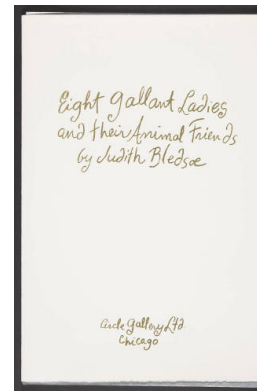 Eight Gallant Ladies
and their Animal Friends
by Judith Bledsoe
Circle Gallery Ltd
Chicago